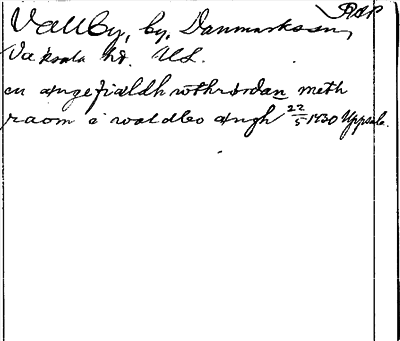 RSP
Vallby, by, Danmarks sn,
Vaksala hd. UL.
en ængefiældh wthrördan meth
raom i waldbo ængh 22/5 1430 Uppsala.